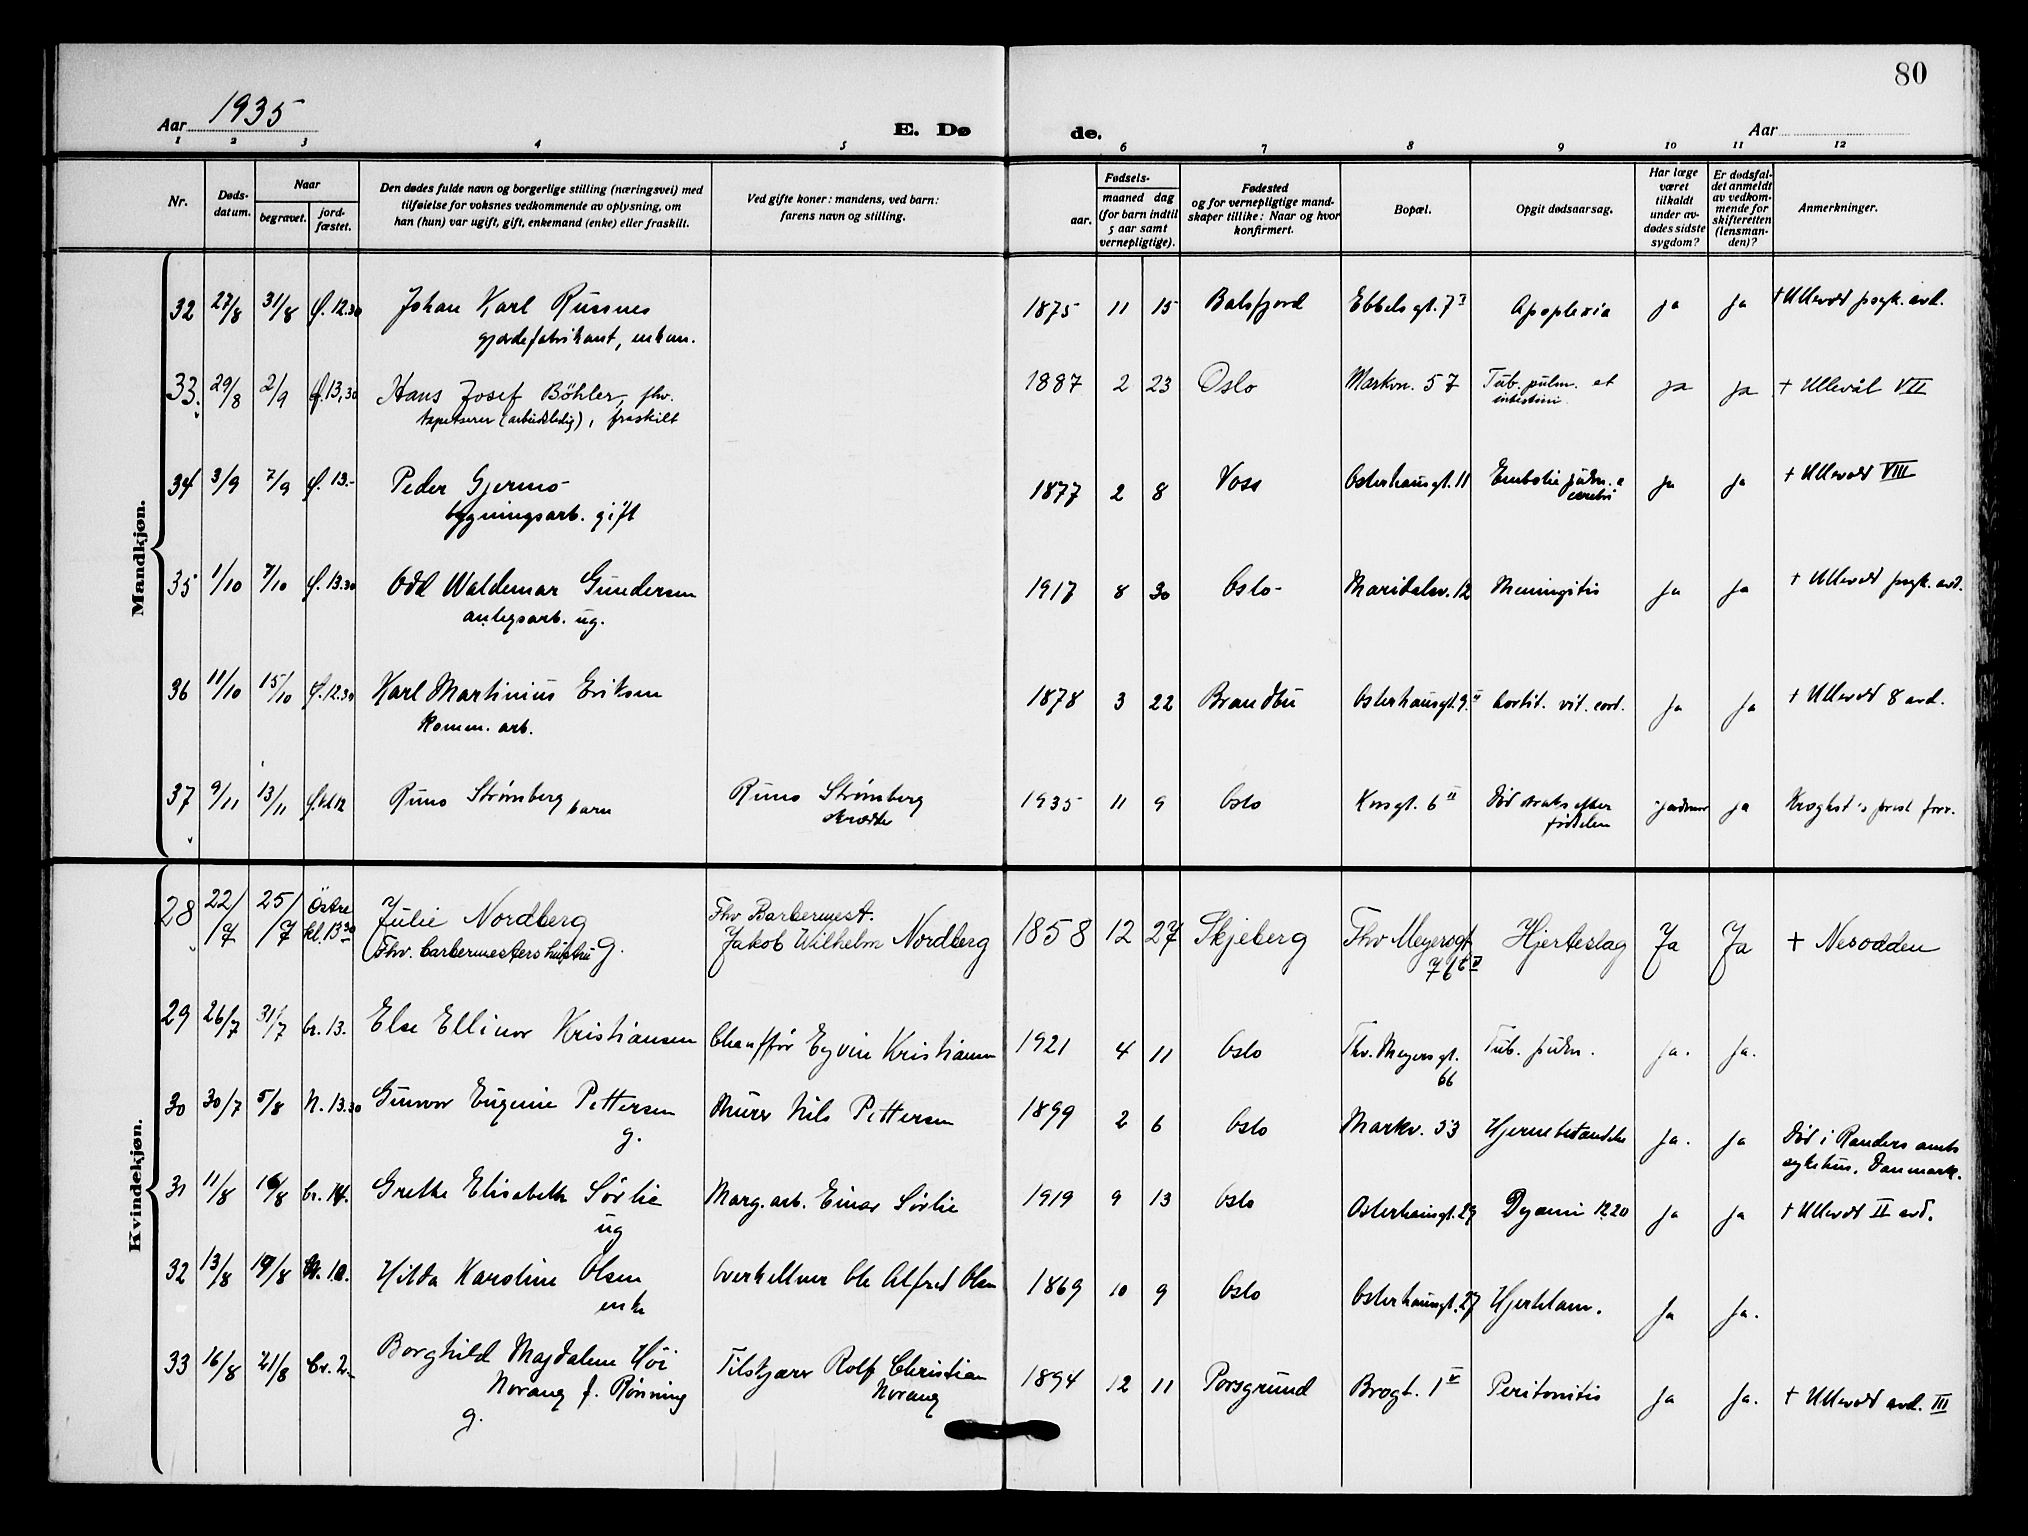 80
Aar 1935 E. Dø de. Aar
1 2 3 4 5 6 7 8 9 10 11 12
Nr. Døds-datum. Naar begravet. jord-fæstet. Den dødes fulde navn og borgerlige stilling (næringsvei) med tilføielse for voksnes vedkommende av oplysning, om han (hun) var ugift, gift, enkemand (enke) eller fraskilt. Ved gifte koner: mandens, ved barn: farens navn og stilling. Fødsels- aar. maaned dag (for barn indtil 5 aar samt vernepligtige). Fødested og for vernepligtige mand-skaper tillike: Naar og hvor konfirmert. Bopæl. Opgit dødsaarsag. Har læge været tilkaldt under av-dødes sidste sygdom? Er dødsfal-det anmeldt av vedkom-mende for skifteretten (lensman-den)? Anmerkninger.
Mandkjøn.
32 27/8 31/8 f. 12.30 Johan Karl Russnes 1875 11 15 Balsfjord Ebbels gt. 7 I Apoplexia ja ja + Ullevål psyk. avd.
gjordefabrikant, enkem.
33. 29/8 2/9 f. 13,30 Hans Josef Böhler, fhv. 1887 2 23 Oslo Markvn. 57 Tub. pulm. et ja ja + Ullevål VII
tapetserer (arbeidsledig), fraskilt intestini.
34 3/9 7/9 f. 13.- Peder Gjermo 1877 2 8 Voss Osterhausgt. 11 Embolie pulm. e ja ja + Ullevål VIII
bygningsarb. gift cerebri
35 1/10 7/10 f. 13.30 Odd Waldemar Gundersen 1917 8 30 Oslo- Maridalsv. 12 Meningitis ja ja + Ullevål psyk. avd.
anlegsarb. ug.
36 11/10 15/10 f. 12.30 Karl Martinius Eriksen 1878 3 22 Brandbu Osterhausgt. 9. II vit. cord. ja ja + Ullevål 8 avd.
Komm. arb.
37 9/11 13/11 f. kl 12 Runo Strømberg barn Runo Strømberg 1935 11 9 Oslo Korsgt. 6 II Død straks efter jordmor ja Krogkst's prest forr.
skredder fødselen
Kvindekjøn.
28 22/7 25/7 Östre kl. 13 30 Julie Nordberg Fhv Barbermest. 1858 12 27 Skjeberg Thv Meyersgt Hjerteslag Ja Ja + Nesodden
(Fhv. barbermesters hustru g. Jakob Wilhelm Nordberg 76 IV
29 26/7 31/7 br. 13. Else Ellinor Kristiansen Chauffør Eyvin Kristiansen 1921 4 11 Oslo Thv. Meyersgt. 66 Tub. pulm. ja. ja.
30 30/7 5/8 N. 13.30 Gunvor Eugenie Pettersen Murer Nils Pettersen 1899 2 6 Oslo Markv. 53 Hjernebetændelse ja. ja Død i Randers amts
g. sykehus, Danmark.
31 11/8 16/8 br. 14. Grethe Elisabeth Sørlie Marg. arb. Einar Sørlie 1919 9 13 Oslo Osterhausgt. 29 ja ja + Ullevål II avd.
ug
32 13/8 19/8 Kr. 10. Hilda Karoline Olsen Overkellner Ole Alfred Olsen 1869 10 9 Oslo Osterhausgt. 27 Hjertelam. ja ja.
enke
33 16/8 21/8 br. 2.- Borghild Magdalene Høi Tilskjærer Rolf Christian 1894 12 11 Porsgrund Brogt. 1 V Peritonitis ja ja. + Ullevål avd. III
Norang f. Rønning Norang
g.